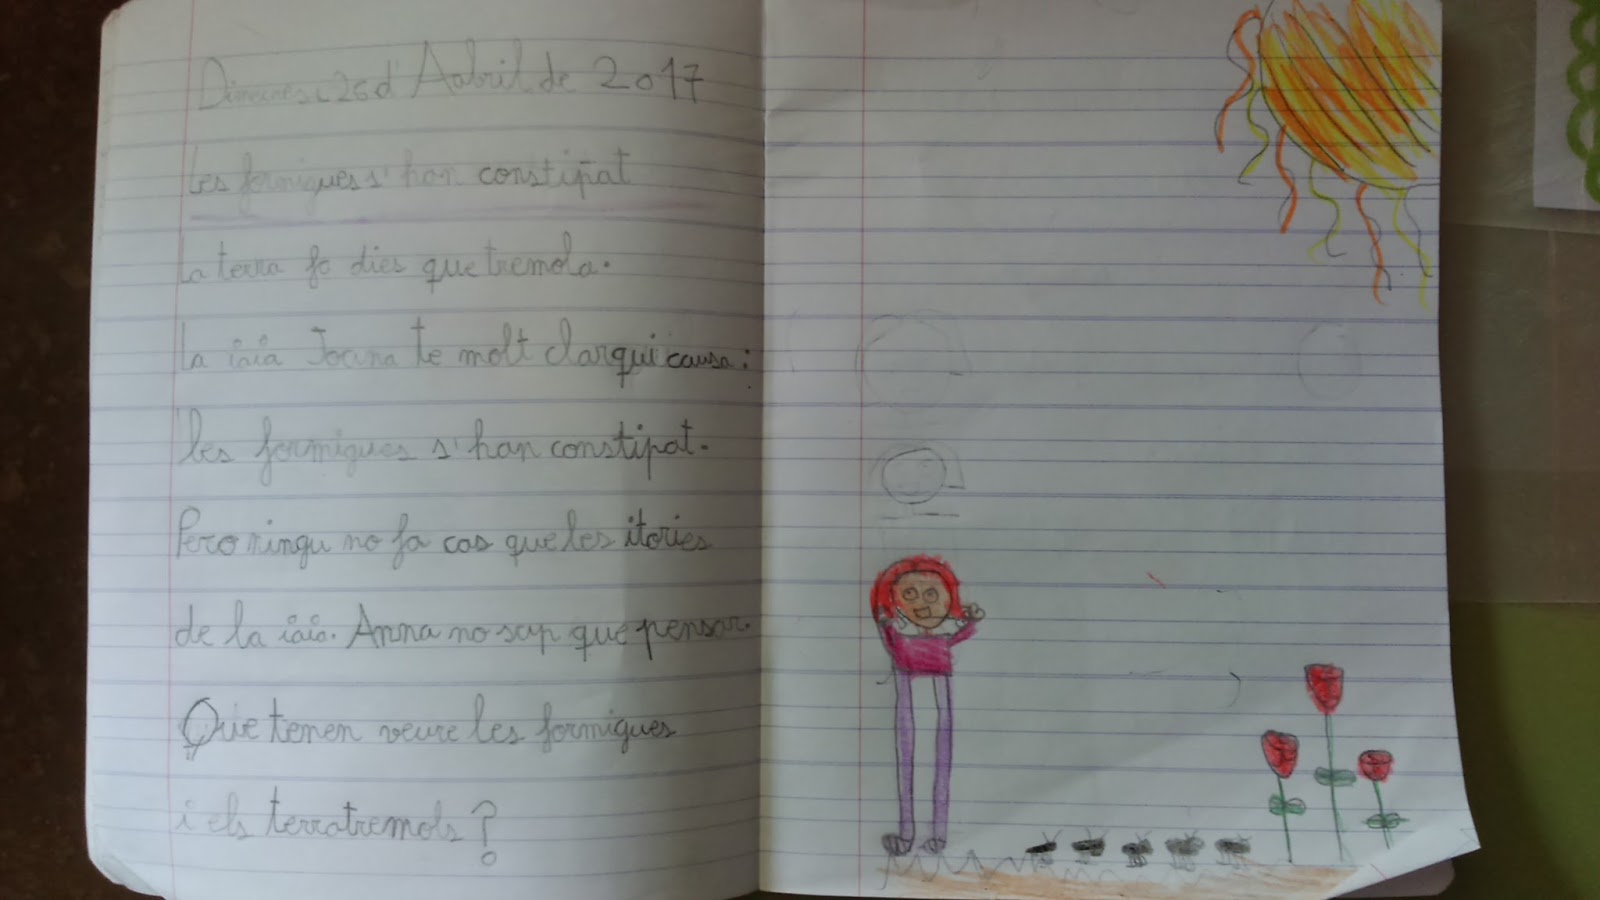 Dimecres 26 d'Aabril de 2017
Les formigues s'han constipat
La terra fa dies que tremola.
La iaia Joana te molt clar qui causa:
les formigues s'han constipat.
Pero ningu no fa cas que les itories
de la iaia. Anna no sap que pensar.
Que tenen veure les formigues
i els terratremols?